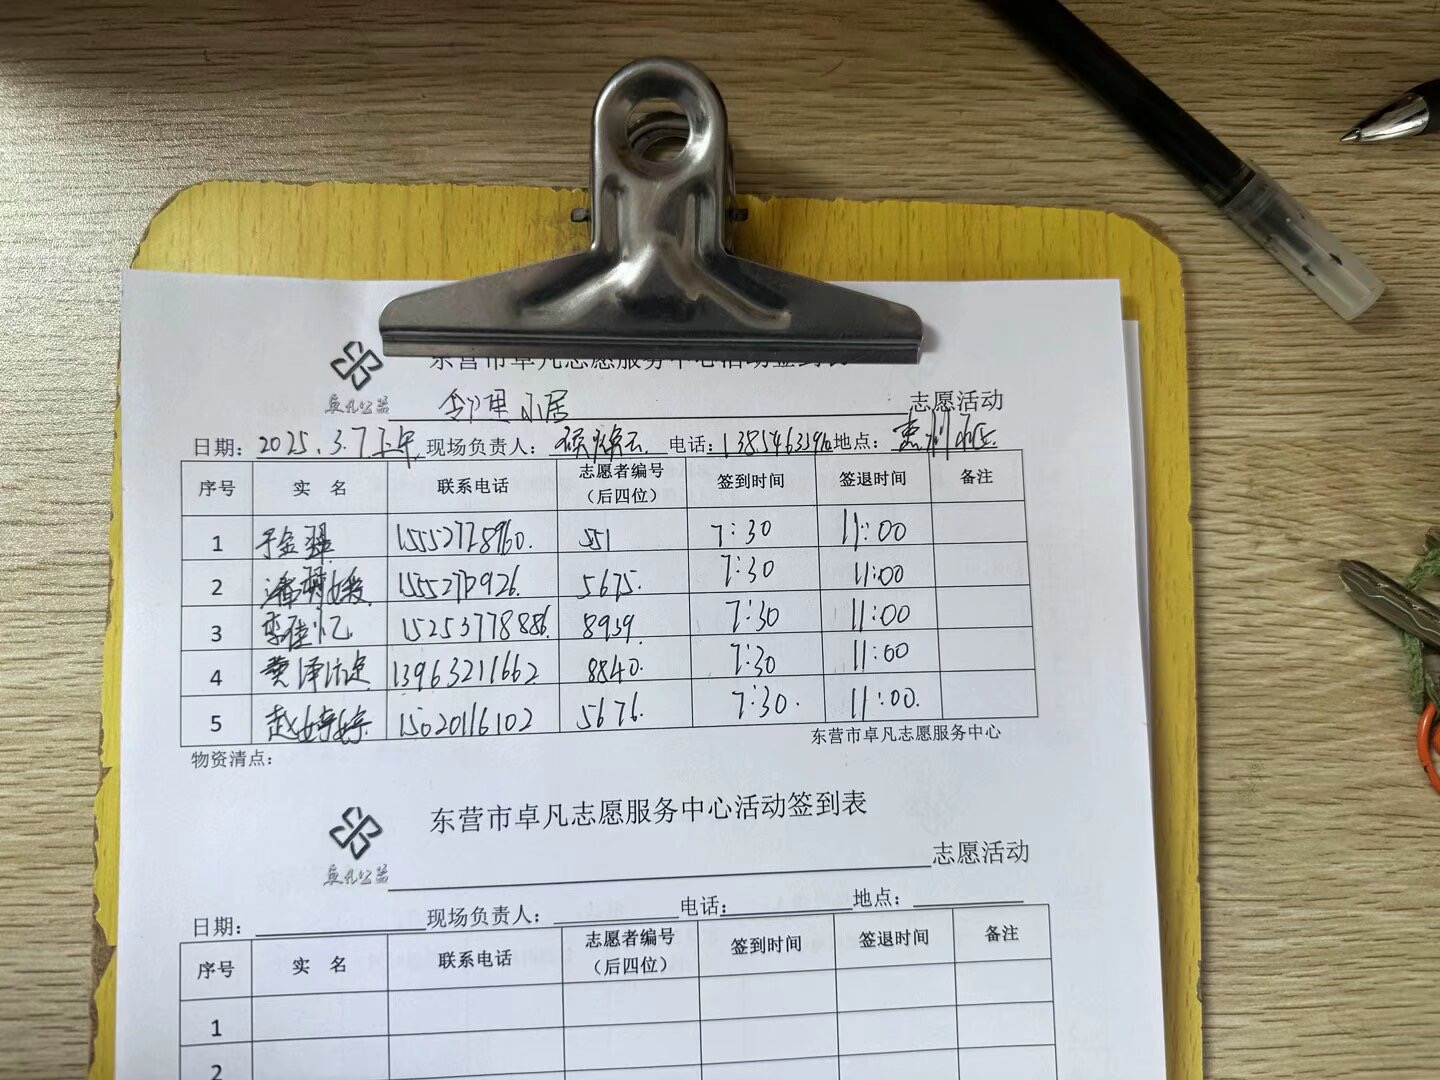 东营市卓凡志愿服务中心活动签到表
卓凡公益 邻里小居 志愿活动
日期: 2025.3.7上午 现场负责人: 电话: 地点:
序号 实 名 联系电话 志愿者编号（后四位） 签到时间 签退时间 备注
1 于金强 15552728960. 551 7:30 11:00
2 5675. 7:30 11:00
3 李佳忆 15253778886. 8939. 7:30 11:00
4 13963211662 8840. 7:30 11:00
5 赵婷婷 15020116102 5676. 7:30. 11:00.
东营市卓凡志愿服务中心
物资清点:
东营市卓凡志愿服务中心活动签到表
卓凡公益 志愿活动
日期: 现场负责人: 电话: 地点:
序号 实 名 联系电话 志愿者编号（后四位） 签到时间 签退时间 备注
1
2